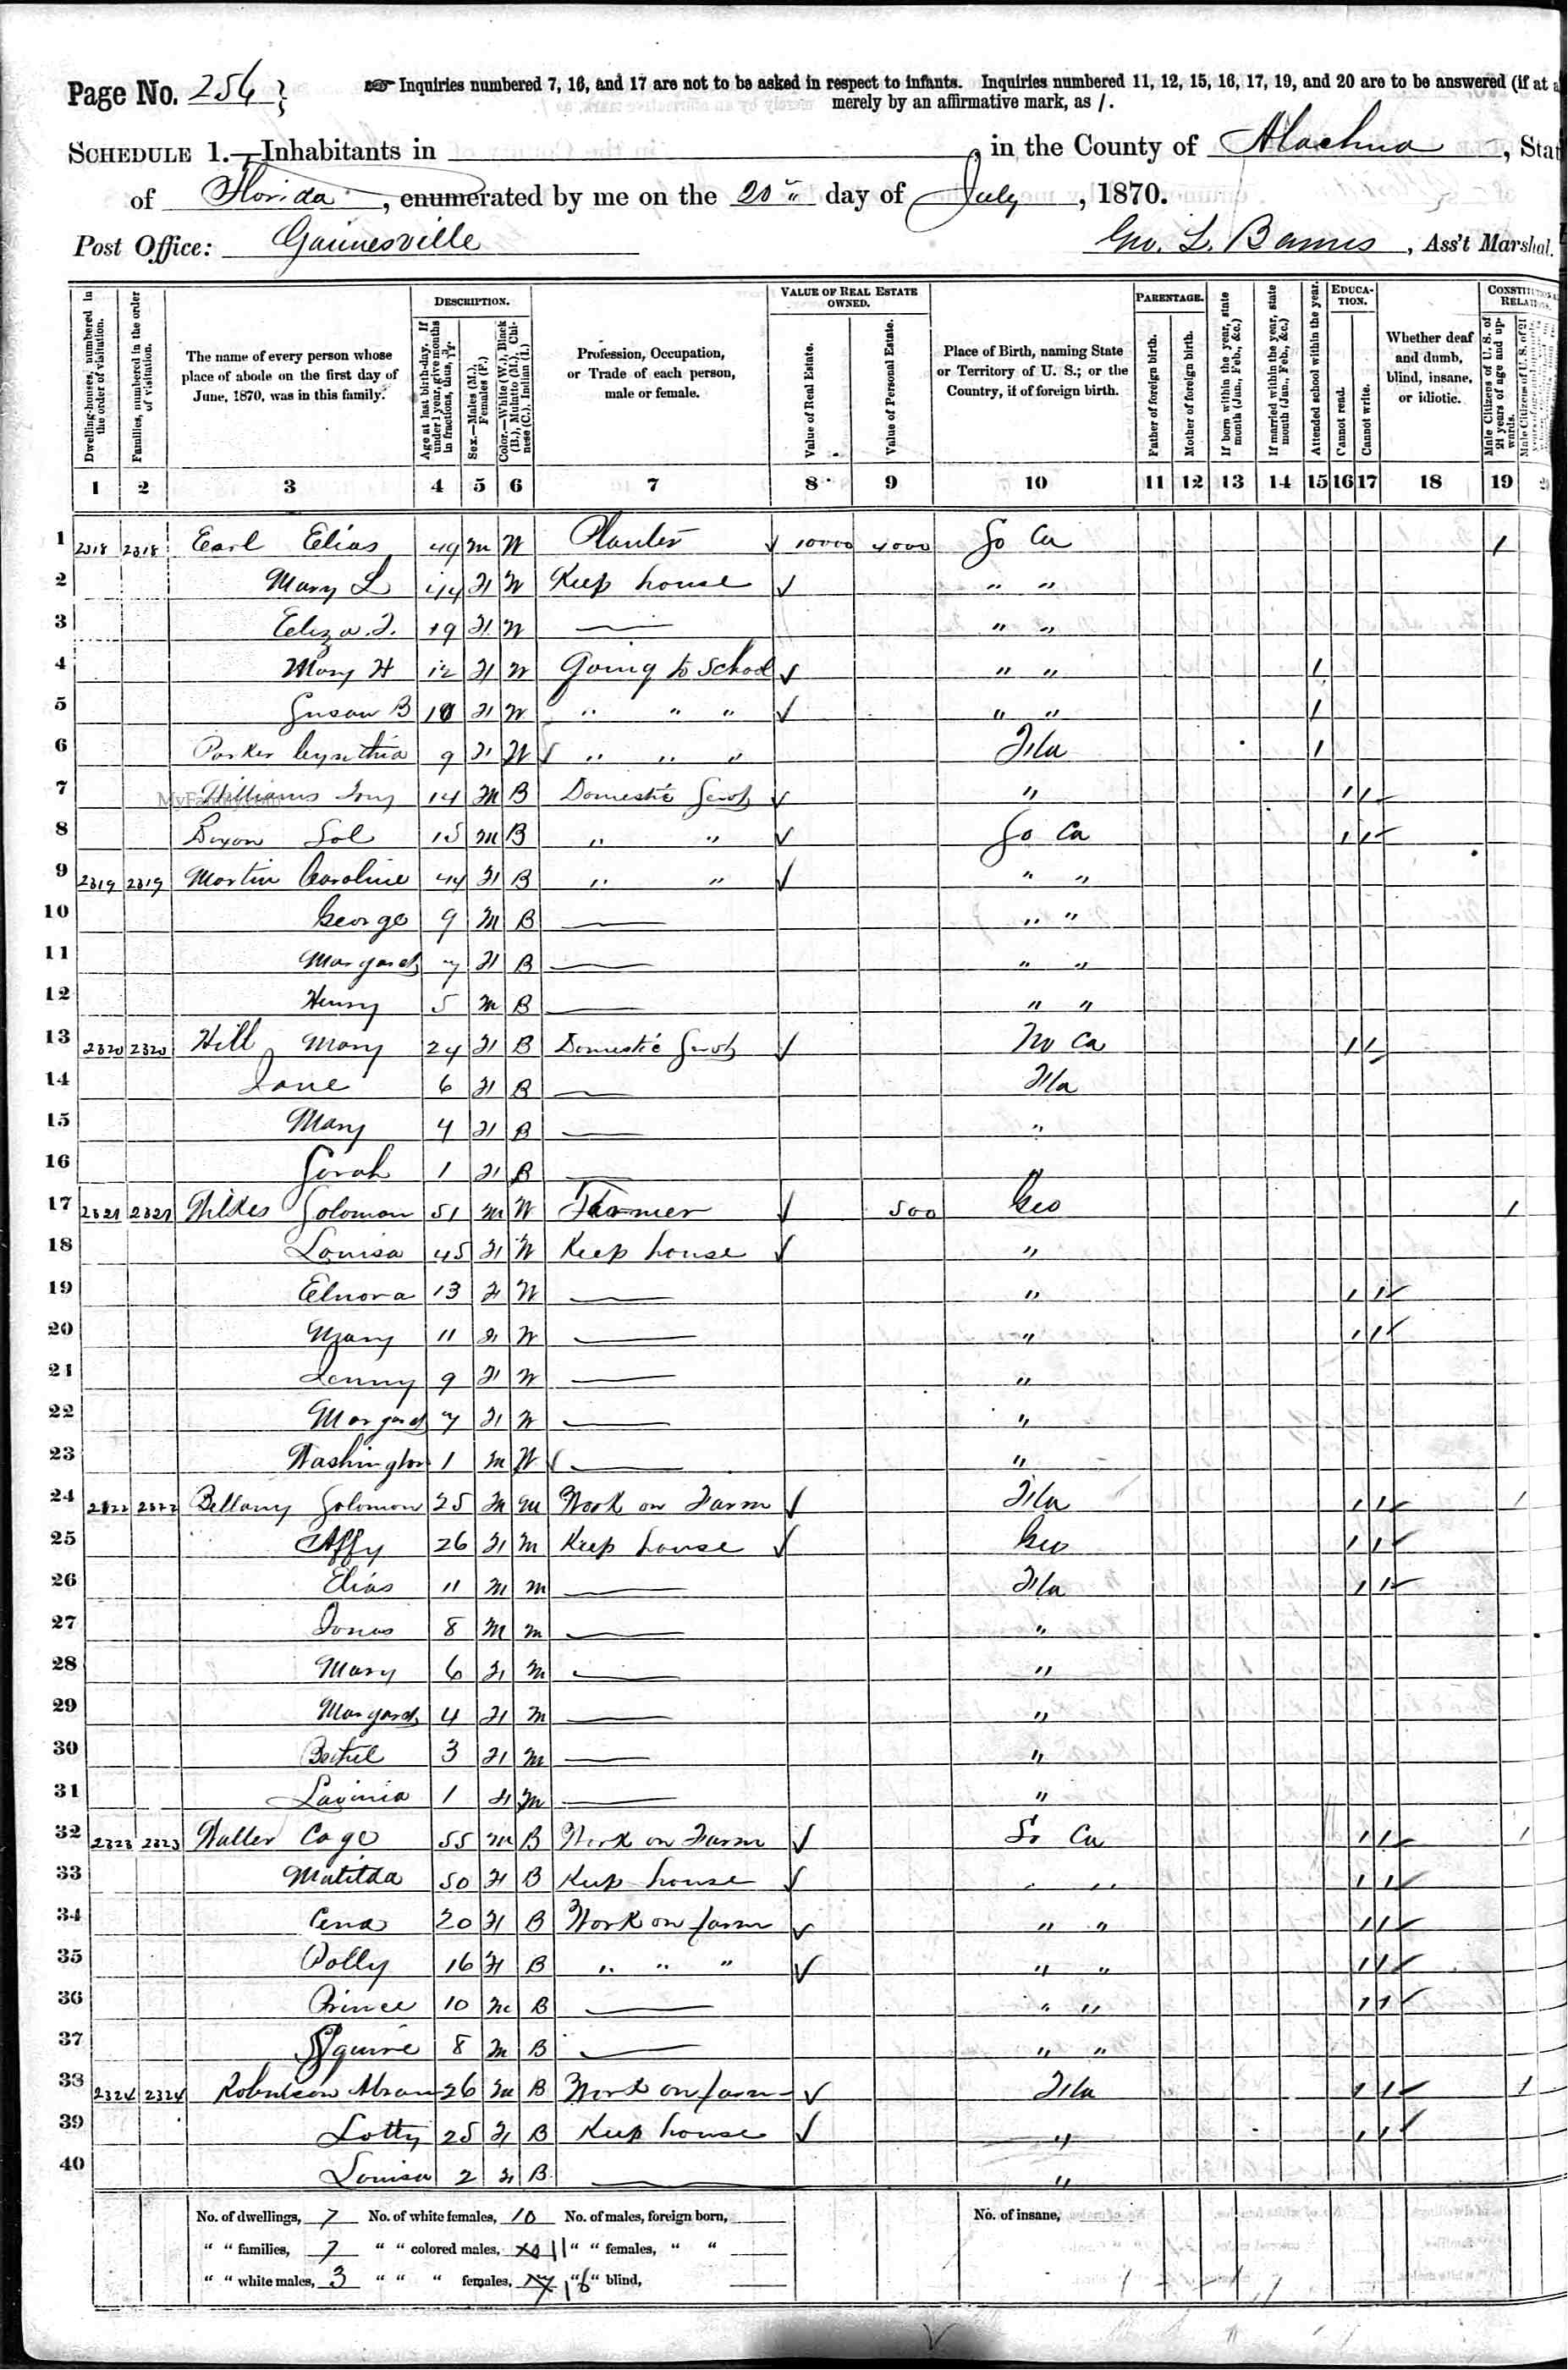 Page No. 256
☞ Inquiries numbered 7, 16, and 17 are not to be asked in respect to infants. Inquiries numbered 11, 12, 15, 16, 17, 19, and 20 are to be answered (if at a
merely by an affirmative mark, as /.
SCHEDULE 1.—Inhabitants in , in the County of Alachua , Stat
of Florida , enumerated by me on the 20" day of July , 1870.
Post Office: Gainesville Geo. L. Barnes , Ass't Marshal.
Dwelling-houses, numbered in the order of visitation.
Families, numbered in the order of visitation.
The name of every person whose place of abode on the first day of June, 1870, was in this family.
DESCRIPTION.
Age at last birth-day. If under 1 year, give months in fractions, thus,
Sex.—Males (M.), Females (F.)
Color.—White (W.), Black (B.), Mulatto (M.), Chinese (C.), Indian (I.)
Profession, Occupation, or Trade of each person, male or female.
VALUE OF REAL ESTATE OWNED.
Value of Real Estate.
Value of Personal Estate.
Place of Birth, naming State or Territory of U. S.; or the Country, if of foreign birth.
PARENTAGE.
Father of foreign birth.
Mother of foreign birth.
If born within the year, state month (Jan., Feb., &c.)
If married within the year, state month (Jan., Feb., &c.)
Attended school within the year.
EDUCATION.
Cannot read.
Cannot write.
Whether deaf and dumb, blind, insane, or idiotic.
Male Citizens of U. S. of 21 years of age and upwards.
1 2 3 4 5 6 7 8 9 10 11 12 13 14 15 16 17 18 19 20
1 2318 2318 Earl Elias 49 M W Planter √ 10000 4000 So Ca /
2 Mary L 44 F W Keep house √ " "
3 Eliza. F. 19 F W — " "
4 Mary H 12 F W Going to School √ " " /
5 Susan B 10 F W " " " √ " " /
6 Parker Cynthia 9 F W " " " Fla /
7 Williams Tony 14 M B Domestic Servt √ " / /
8 Dixon Sol 15 M B " " √ So Ca / /
9 2319 2319 Martin Caroline 44 F B " " √ " "
10 George 9 M B — " "
11 Margaret 7 F B — " "
12 Henry 5 M B — " "
13 2320 2320 Hill Mary 24 F B Domestic Servt √ No Ca / /
14 Jane 6 F B — Fla
15 Mary 4 F B — "
16 Sarah 1 F B — "
17 2321 2321 Wilkes Solomon 51 M W Farmer √ 500 Geo /
18 Louisa 45 F W Keep house √ "
19 Elnora 13 F W — " / /
20 Mary 11 F W — " / /
21 Jenny 9 F W — "
22 Margaret 7 F W — "
23 Washington 1 M W — "
24 2322 2322 Bellamy Solomon 25 M M Work on Farm √ Fla / / /
25 Affy 26 F M Keep house √ Geo / /
26 Elias 11 M M — Fla / /
27 Jonas 8 M M — "
28 Mary 6 F M — "
29 Margaret 4 F M — "
30 Bethel 3 F M — "
31 Lavinia 1 F M — "
32 2323 2323 Walter Cago 55 M B Work on Farm √ So Ca / / /
33 Matilda 50 F B Keep house √ " " / /
34 Cena 20 F B Work on farm √ " " / /
35 Polly 16 F B " " " √ " " / /
36 Prince 10 M B — " " / /
37 Squire 8 M B — " "
38 2324 2324 Robinson Abram 26 M B Work on farm √ Fla / / /
39 Lotty 25 F B Keep house √ " / /
40 Louisa 2 F B — "
No. of dwellings, 7 No. of white females, 10 No. of males, foreign born, No. of insane,
" " families, 7 " " colored males, 11 " " females, " "
" " white males, 3 " " " females, 16 " " blind,